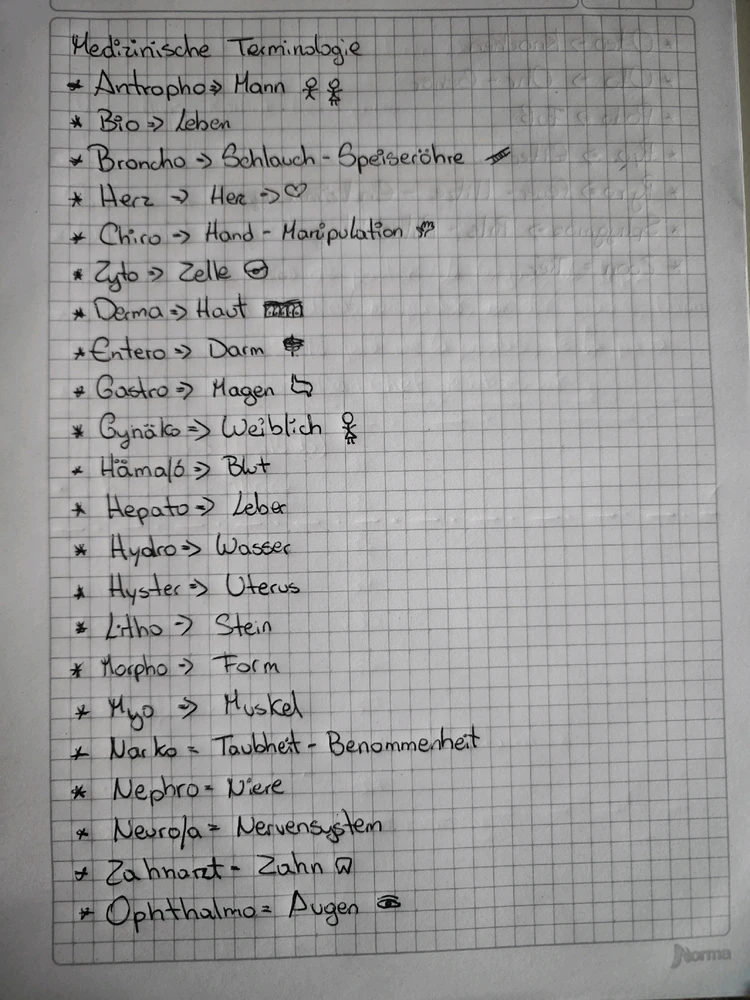 Medizinische Terminologie
* Antropho => Mann
* Bio => Leben
* Broncho => Schlauch - Speiseröhre
* Herz => Herz =>
* Chiro => Hand - Manipulation
* Zyto => Zelle
* Derma => Haut
* Entero => Darm
* Gastro => Magen
* Gynäko => Weiblich
* Häma/ó => Blut
* Hepato => Leber
* Hydro => Wasser
* Hyster => Uterus
* Litho -> Stein
* Morpho -> Form
* Myo => Muskel
* Narko = Taubheit - Benommenheit
* Nephro = Niere
* Neuro/a = Nervensystem
* Zahnarzt - Zahn
* Ophthalmo = Augen
Norma